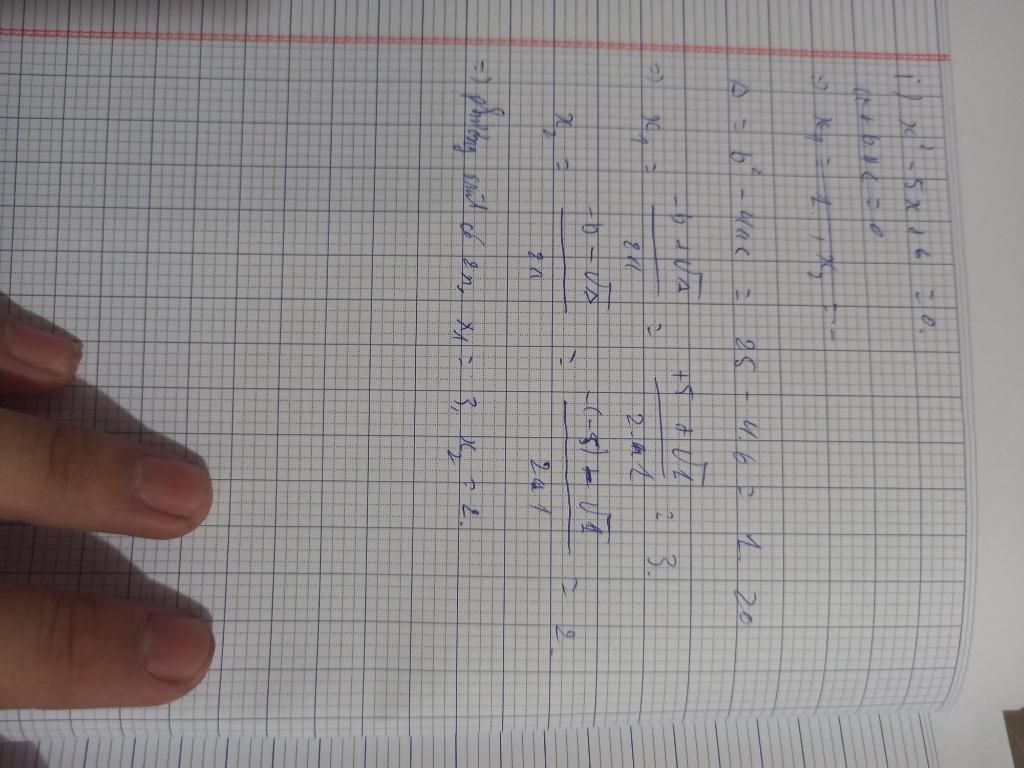 i) x² - 5x + 6 = 0.
a + b + c = 0
=) x₁ = 1, x₂ = -
Δ = b² - 4ac = 25 - 4.6 = 1 > 0
=) x₁ = -b + √Δ / 2a = +5 + √1 / 2.1 = 3.
x₂ = -b - √Δ / 2a = -(-5) - √1 / 2.1 = 2.
=) phương có 2n₀ x₁ = 3, x₂ = 2.